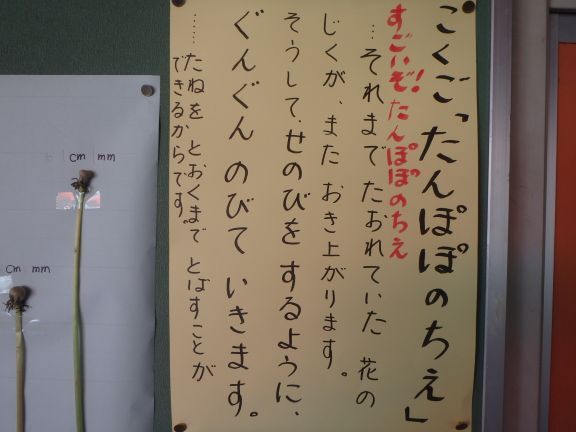 こくご「たんぽぽのちえ」
すごいぞ!たんぽぽのちえ
…それまで たおれていた 花の
じくが、また おき上がります。
そうして、せのびを するように、
ぐんぐん のびて いきます。
……たねを とおくまで とばすことが
できるからです。
cm mm
cm mm